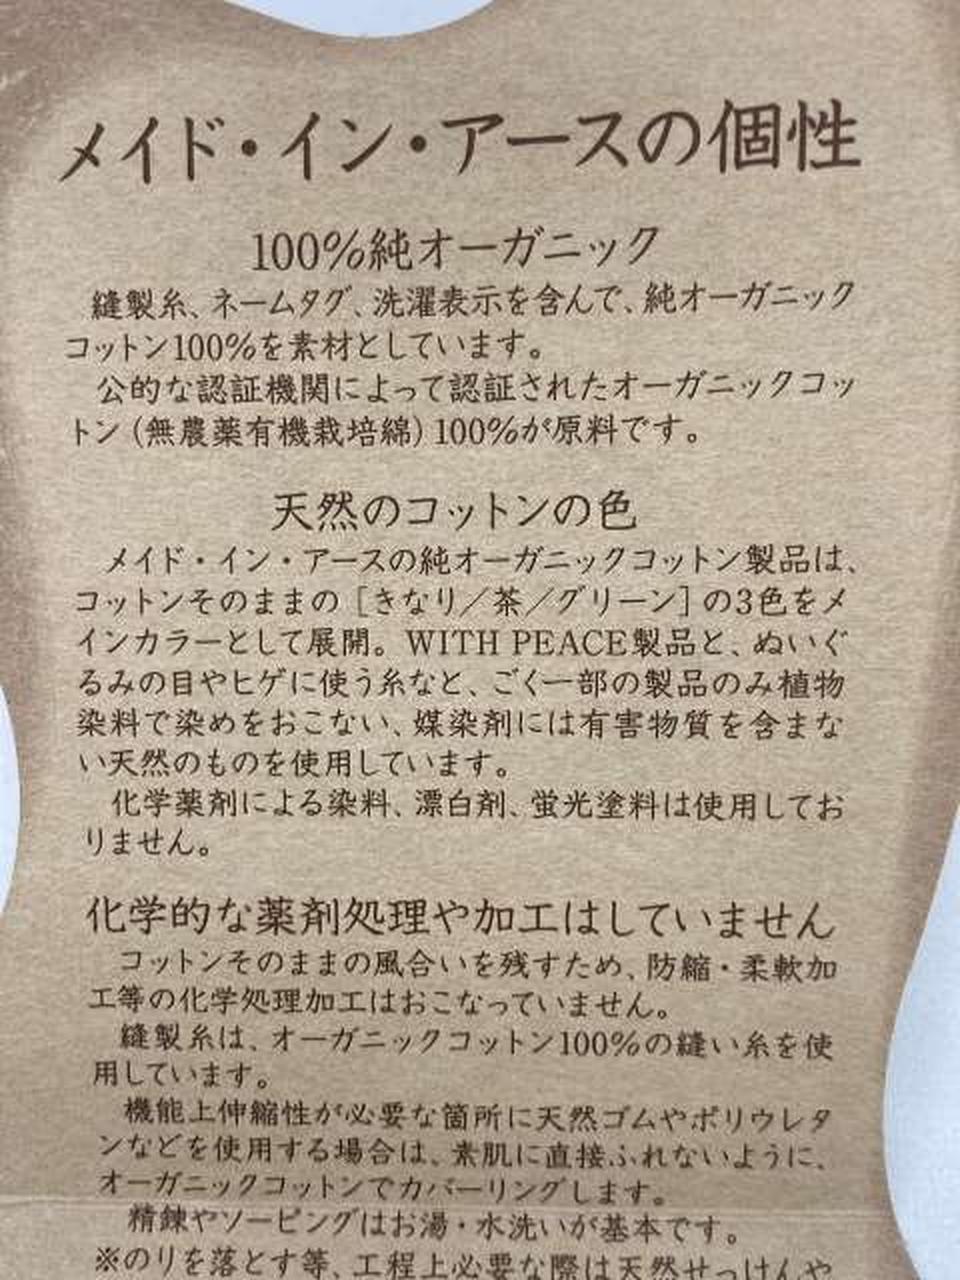 メイド・イン・アースの個性
100%純オーガニック
縫製糸、ネームタグ、洗濯表示を含んで、純オーガニック
コットン100%を素材としています。
公的な認証機関によって認証されたオーガニックコッ
トン(無農薬有機栽培綿)100%が原料です。
天然のコットンの色
メイド・イン・アースの純オーガニックコットン製品は、
コットンそのままの[きなり/茶/グリーン]の3色をメ
インカラーとして展開。WITH PEACE製品と、ぬいぐ
るみの目やヒゲに使う糸など、ごく一部の製品のみ植物
染料で染めをおこない、媒染剤には有害物質を含まな
い天然のものを使用しています。
化学薬剤による染料、漂白剤、蛍光塗料は使用してお
りません。
化学的な薬剤処理や加工はしていません
コットンそのままの風合いを残すため、防縮・柔軟加
工等の化学処理加工はおこなっていません。
縫製糸は、オーガニックコットン100%の縫い糸を使
用しています。
機能上伸縮性が必要な箇所に天然ゴムやポリウレタ
ンなどを使用する場合は、素肌に直接ふれないように、
オーガニックコットンでカバーリングします。
精錬やソーピングはお湯・水洗いが基本です。
※のりを落とす等、工程上必要な際は天然せっけんや